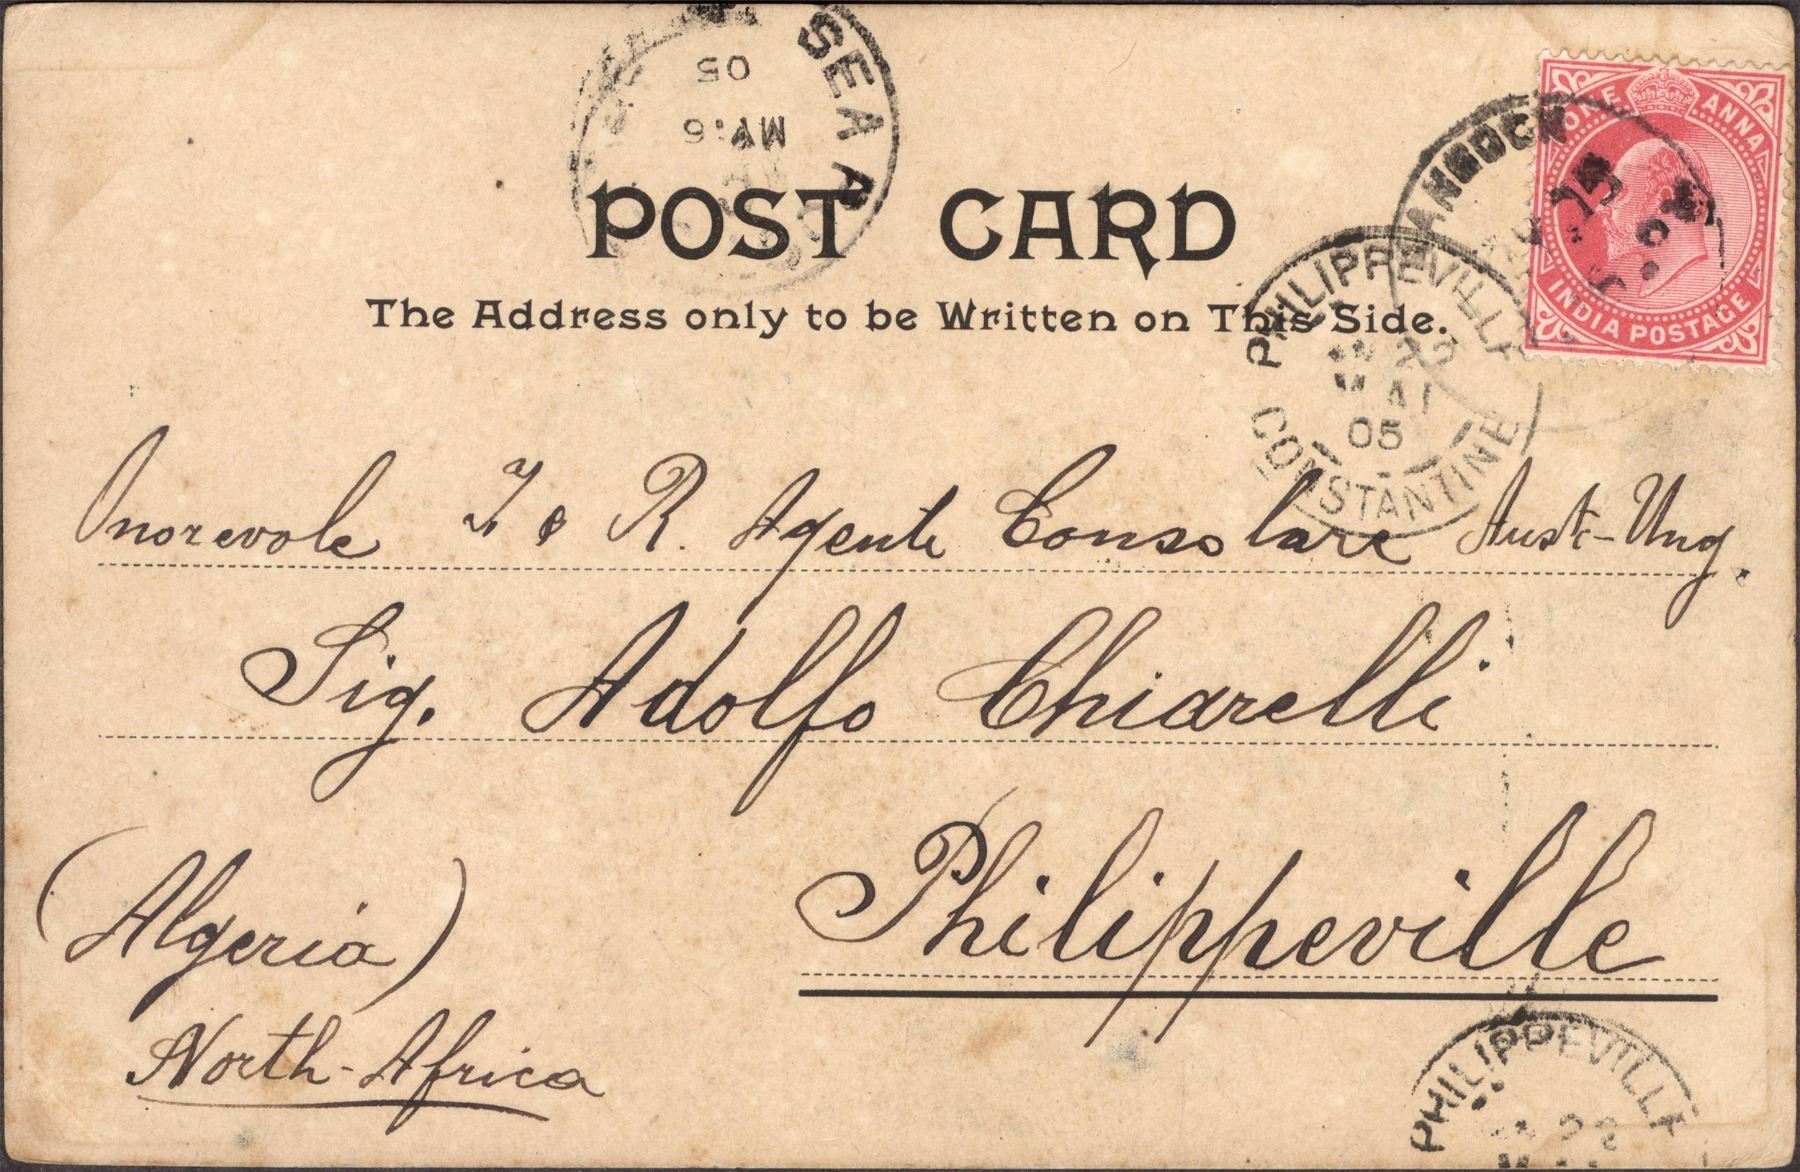 SEA
05
MY.6
ONE ANNA
INDIA POSTAGE
POST CARD
The Address only to be Written on This Side.
PHILIPPEVILLE
MAI
05
CONSTANTINE
Onorevole I & R. Agente Consolare Aust-Ung.
Sig. Adolfo Chiarelli
Philippeville
(Algeria)
North-Africa
PHILIPPEVILLE